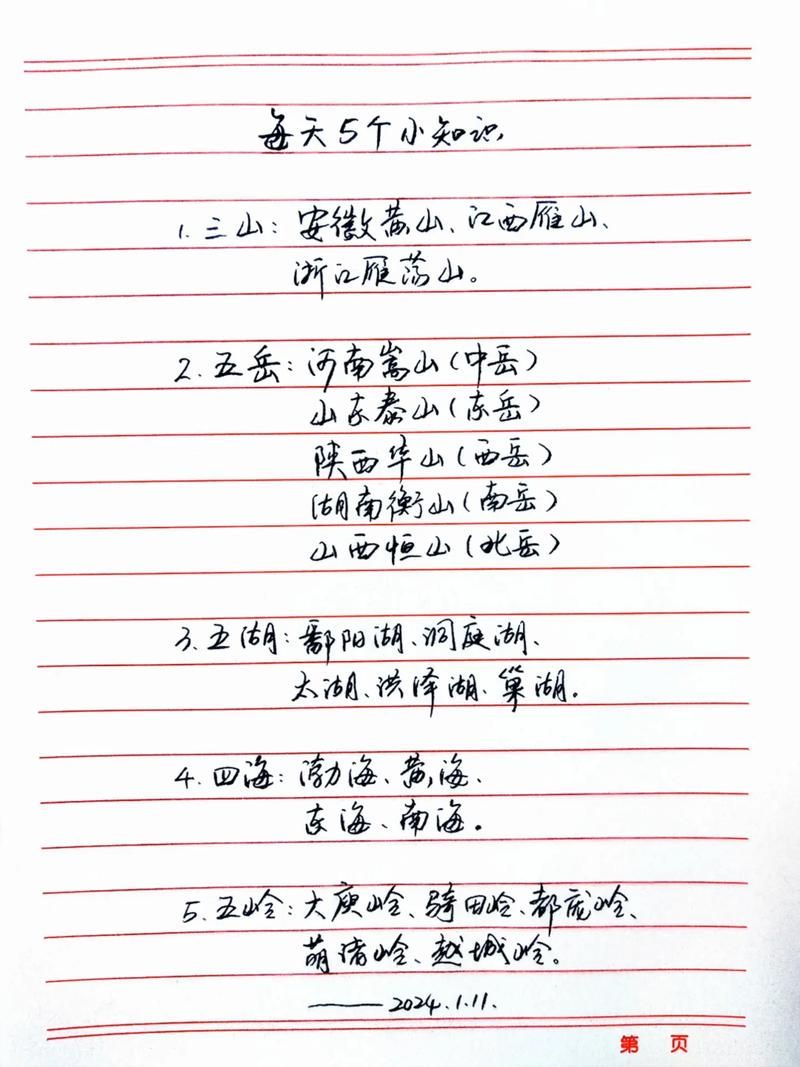 每天5个小知识
1.三山：安徽黄山、江西雁山、
浙江雁荡山。
2.五岳：河南嵩山（中岳）
山东泰山（东岳）
陕西华山（西岳）
湖南衡山（南岳）
山西恒山（北岳）
3.五湖：鄱阳湖、洞庭湖、
太湖、洪泽湖、巢湖.
4.四海：渤海、黄海、
东海、南海.
5.五岭：大庾岭、骑田岭、都庞岭、
萌渚岭、越城岭。
——2024.1.11.
第 页